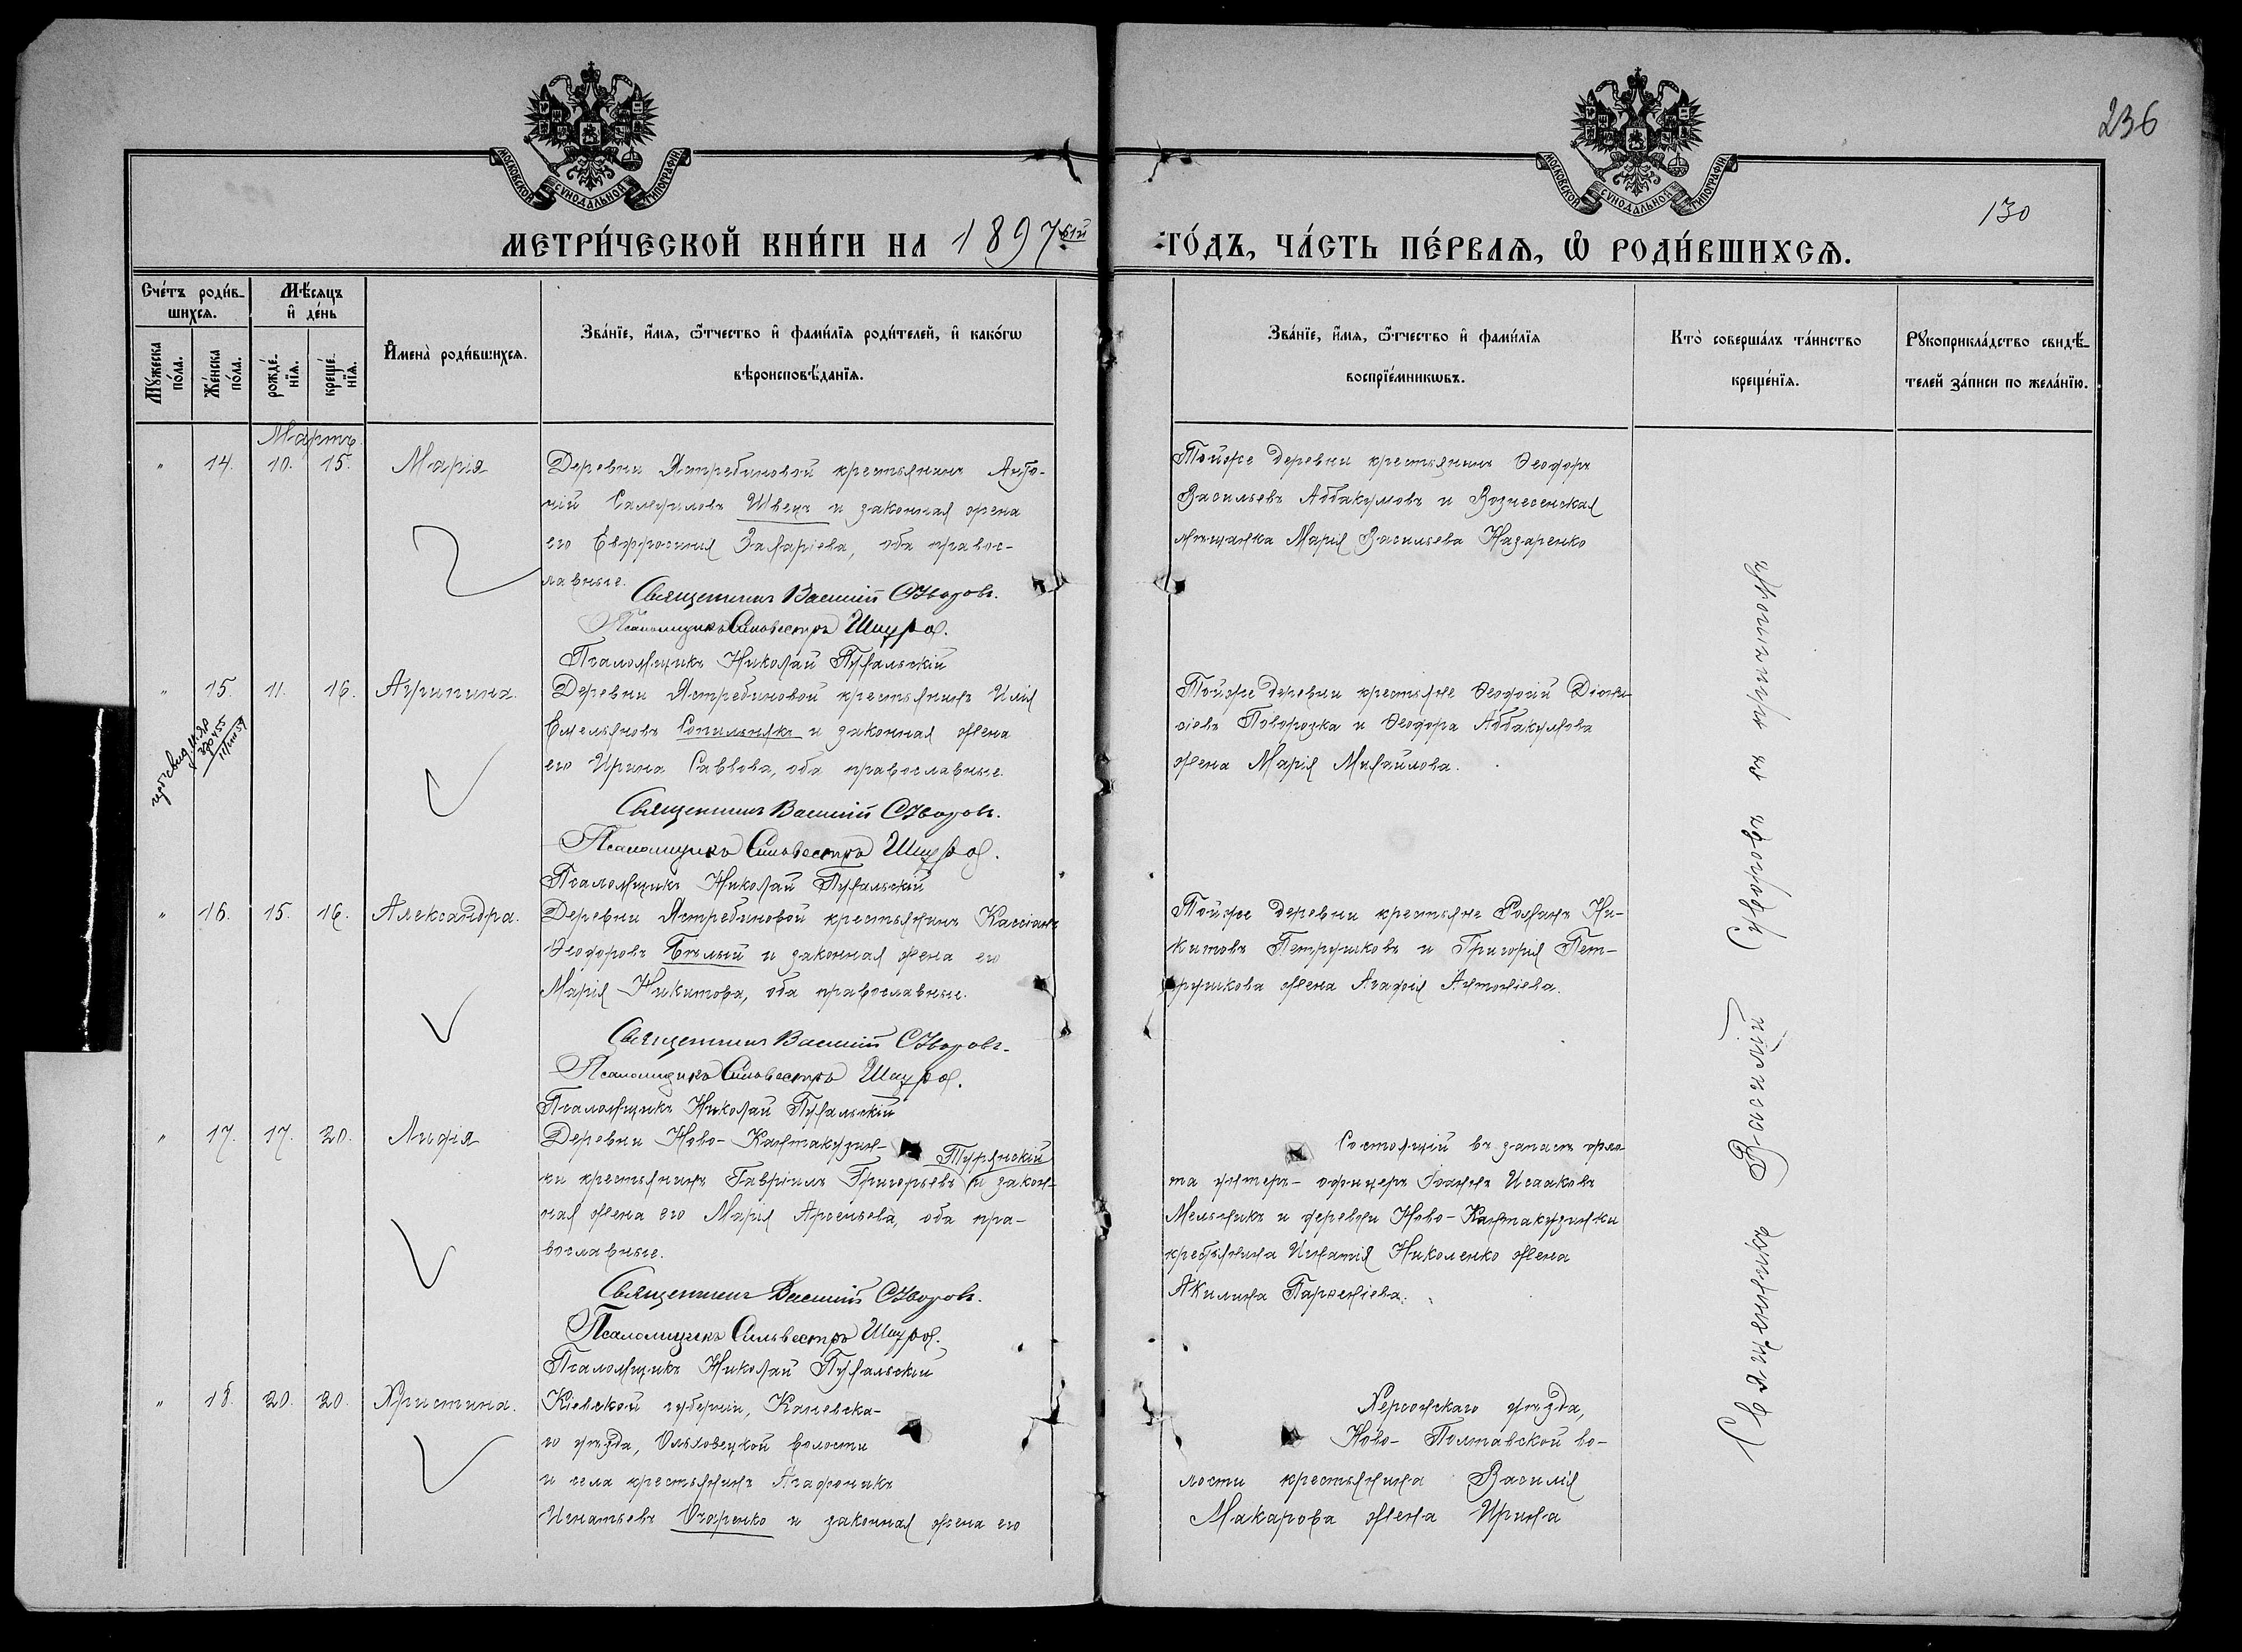 236
130
МОСКОВСКОЙ СѴНОДАЛЬНОЙ ТИПОГРАФІИ
МОСКОВСКОЙ СѴНОДАЛЬНОЙ ТИПОГРАФІИ
МЕТРИ́ЧЕСКОЙ КНИ́ГИ НА 1897ый ГО́ДЪ, ЧА́СТЬ ПЕ́РВАЯ, Ѡ҆ РОДИ́ВШИХСЯ.
Сче́тъ роди́в-
шихся.
Мꙋ́жеска по́ла.
Же́нска по́ла.
Мѣ́сяцъ
и҆ де́нь
рожде́-
нїя.
креще́-
нїя.
И҆мена̀ роди́вшихся.
Зва́нїе, и҆́мя, ѻ҆́тчество и҆ фами́лїя роди́телей, и҆ како́гѡ
вѣроисповѣ́данїя.
Зва́нїе, и҆́мя, ѻ҆́тчество и҆ фами́лїя
воспрїе́мникѡвъ.
Кто̀ соверша́лъ та́инство
креще́нїя.
Рꙋкоприкла́дство свидѣ́-
телей за́писи по жела́нїю.
Мартъ
" 14. 10. 15. Марія
Деревни Ястребиновой крестьянинъ Анто-
ній Самуиловъ Швецъ и законная жена
его Евфросинія Захаріева, оба правос-
лавные.
Священникъ Василій Суворовъ.
Псаломщикъ Сильвестръ Шкура.
Псаломщикъ Николай Пухальскій
Тойже деревни крестьянинъ Ѳеодоръ
Васильевъ Аббакумовъ и Вознесенская
мѣщанка Марія Васильева Назаренко
" 15. 11. 16. Агрипина.
Деревни Ястребиновой крестьянинъ Илія
Емельяновъ Сопильнякъ и законная жена
его Ирина Саввова, оба православные.
Священникъ Василій Суворовъ.
Псаломщикъ Сильвестръ Шкура.
Псаломщикъ Николай Пухальскій
Тойже деревни крестьяне Ѳеодосій Діони-
сіевъ Поворозка и Ѳеодора Аббакумова
жена Марія Михайлова.
" 16. 15. 16. Александра.
Деревни Ястребиновой крестьянинъ Кассіанъ
Ѳеодоровъ Бѣлый и законная жена его
Марія Никитова, оба православные.
Священникъ Василій Суворовъ.
Псаломщикъ Сильвестръ Шкура.
Псаломщикъ Николай Пухальскій
Тойже деревни крестьяне Романъ Ни-
китовъ Петрушковъ и Григорія Пет-
рушкова жена Агафія Антоніева.
" 17. 17. 20. Лидія
Деревни Ново-Кантакузин-
Турянскій
ки крестьянинъ Гавріилъ Григорьевъ и закон-
ная жена его Марія Арсеньева, оба пра-
вославные.
Священникъ Василій Суворовъ.
Псаломщикъ Сильвестръ Шкура.
Псаломщикъ Николай Пухальскій
Состоящій въ запасѣ фло-
та унтеръ-офицеръ Іоаннъ Исааковъ
Мельникъ и деревни Ново-Кантакузинки
крестьянина Игнатія Николенко жена
Акилина Парѳеніева.
" 18. 20. 20. Христина.
Кіевской губерніи, Каневска-
го уѣзда, Ольховецкой волости
и села крестьянинъ Агафоникъ
Игнатьевъ Очаренко и законная жена его
Херсонскаго уѣзда,
Ново-Полтавской во-
лости крестьянина Василія
Макарова жена Ирина
Священникъ Василій Суворовъ съ причтомъ